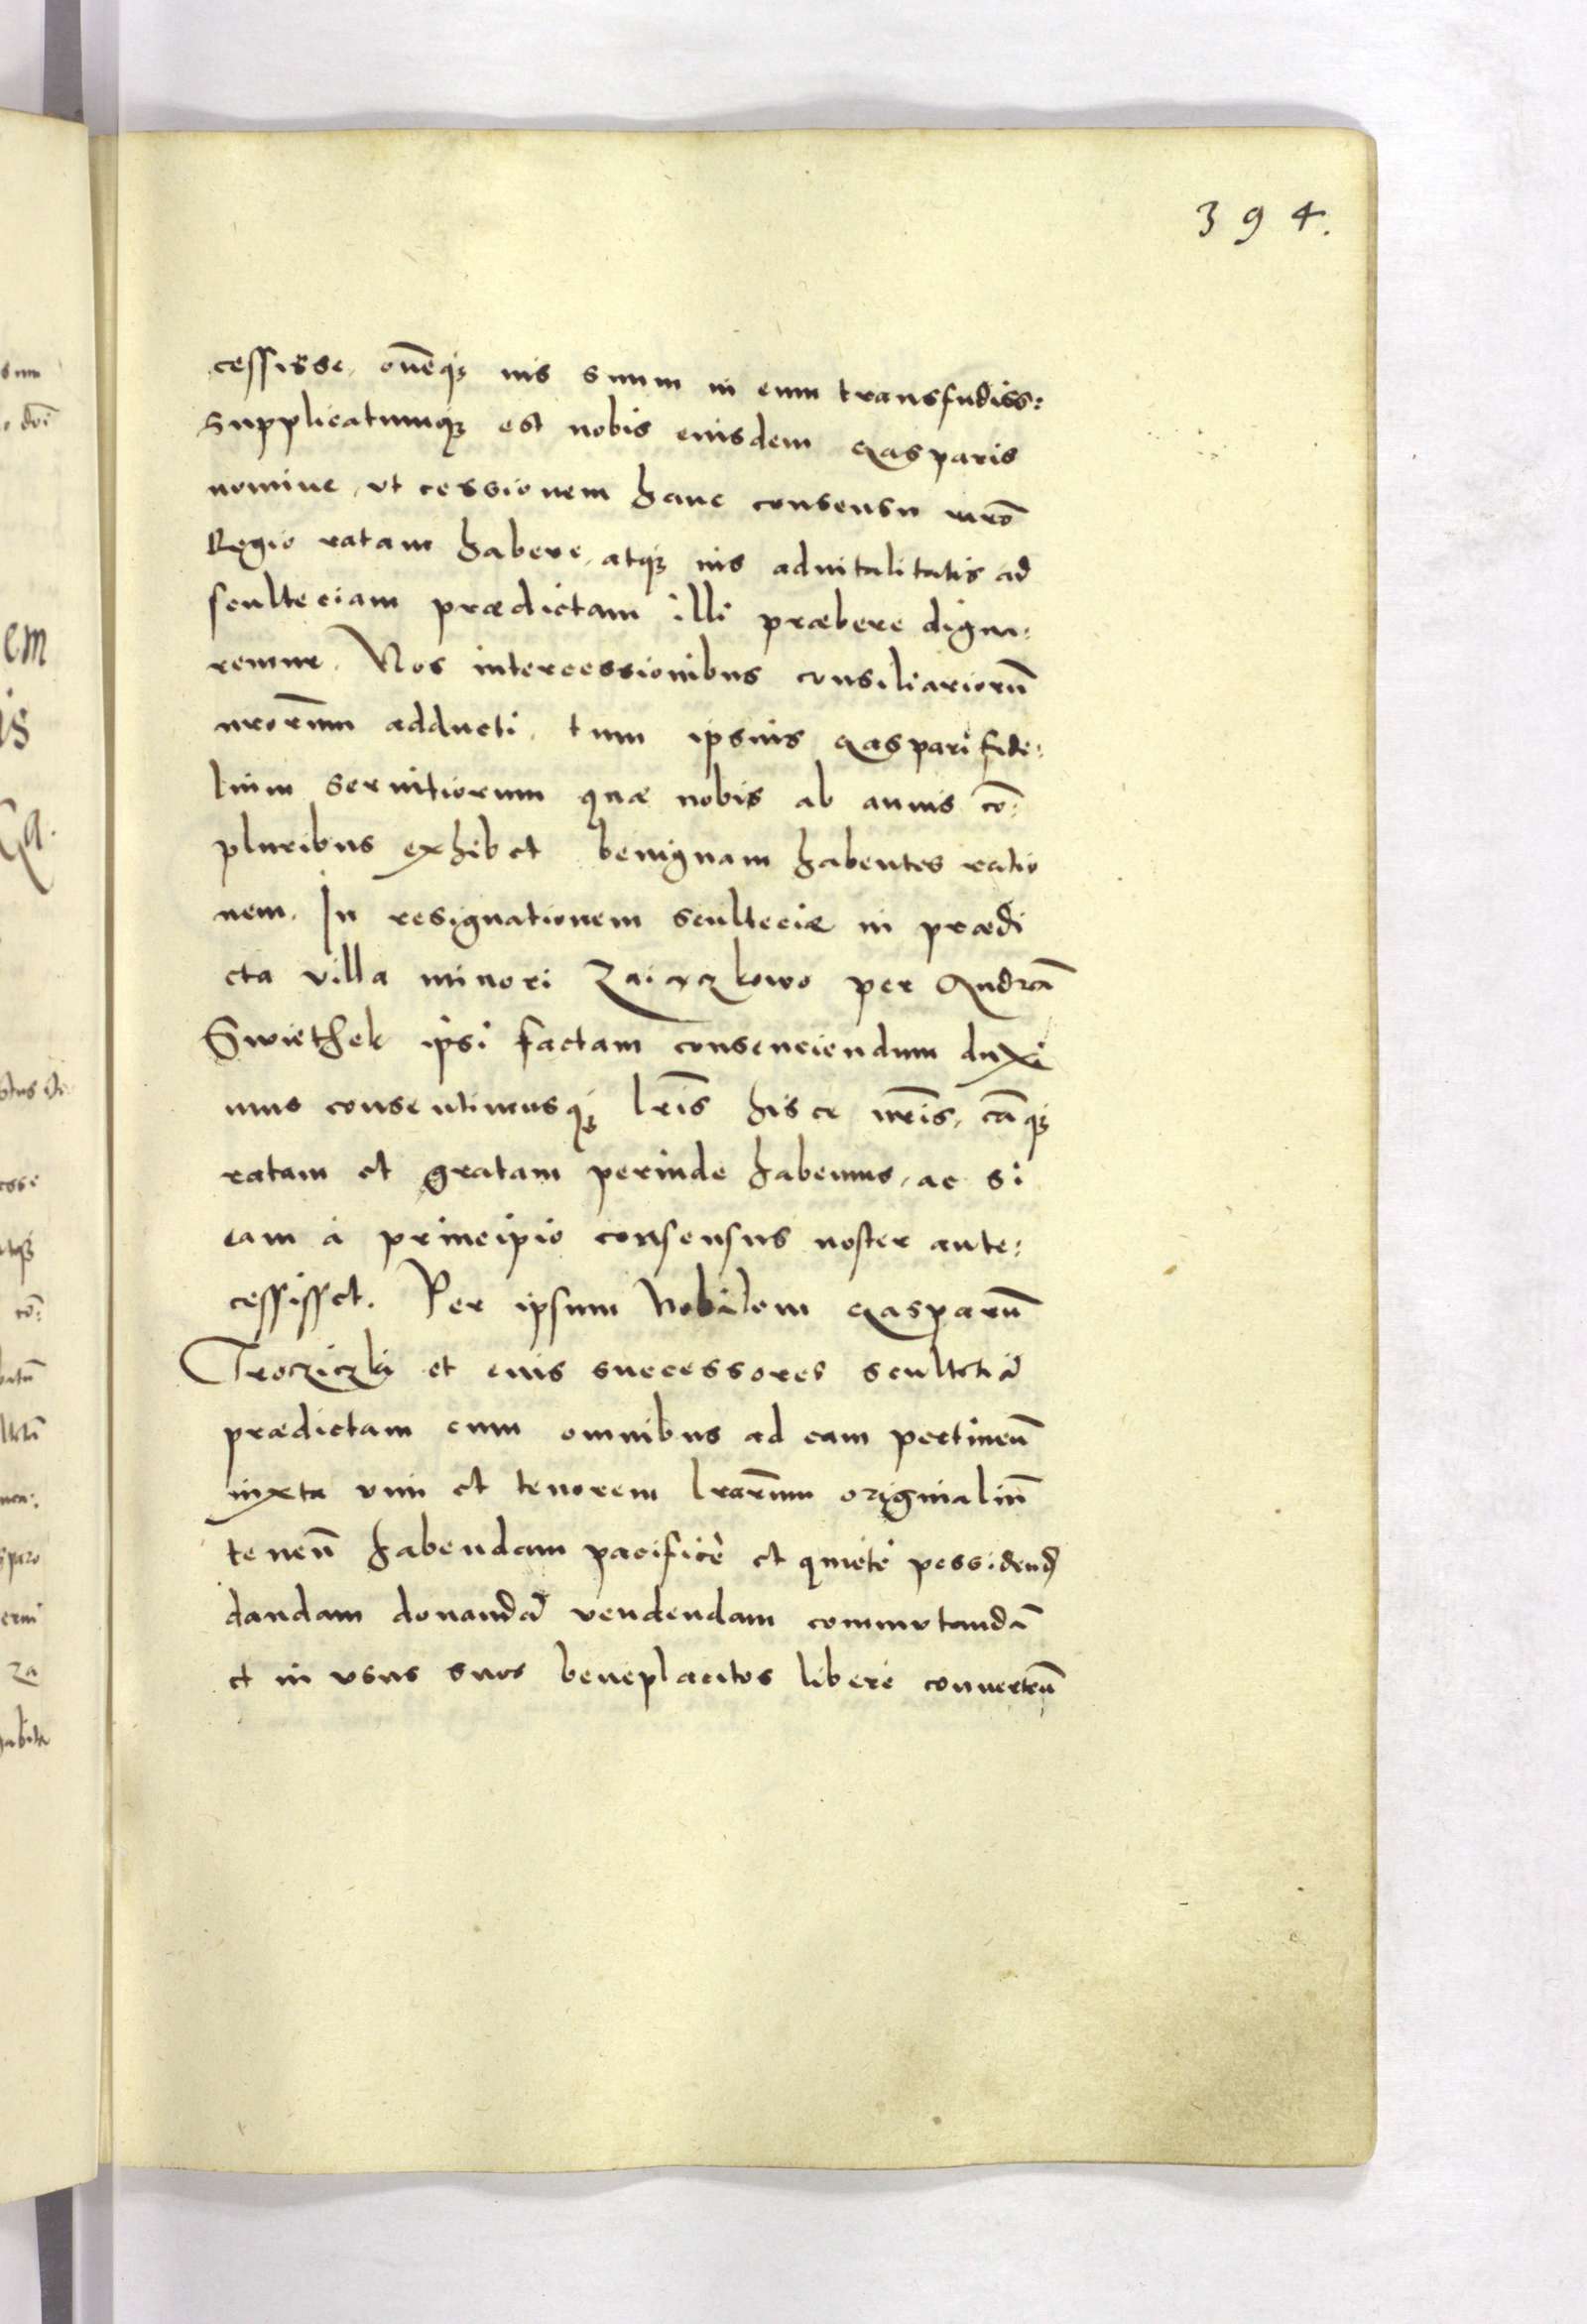 394.
cessisse, om̄eq́ȝ ius suum in eum transfudiss:
Supplicatumq́ȝ est nobis eiusdem Gasparis
nomine, vt cessionem hanc consensu nr̄o
Regio ratam habere, atq́ȝ ius aduitalitatis ad
sculteciam prædictam illi præbere digna:
remur. Nos intercessionibus consiliariorū
nr̄orum adducti, tum ipsius Gaspari fide:
lium seruitiorum quæ nobis ab annis cō:
pluribus exhibet benignam habentes ratio
nem. In resignationem sculteciæ in prædi
cta villa minori Zaiaczkowo per Andreā
Swiethek ipsi factam consenciendum duxi
mus consentimusq́ȝ lr̄is hisce nr̄is, eāq́ȝ
ratam et gratam perinde habemus, ac si
eam à principio consensus noster ante:
cessisset. Per ipsum Nobilem Gasparū
Trocziczki et eius successores scultetiā
prædictam cum omnibus ad eam pertineñ
iuxta vim et tenorem lr̄arum originaliū
teneñ habendam pacificè et quietè possidend
dandam donandā vendendam commutandā
et in vsus suos beneplacitos liberè conuerteñ
sum
doī
em
is
Ga.
esse
atq́ȝ
cō:
sparo
za
habita